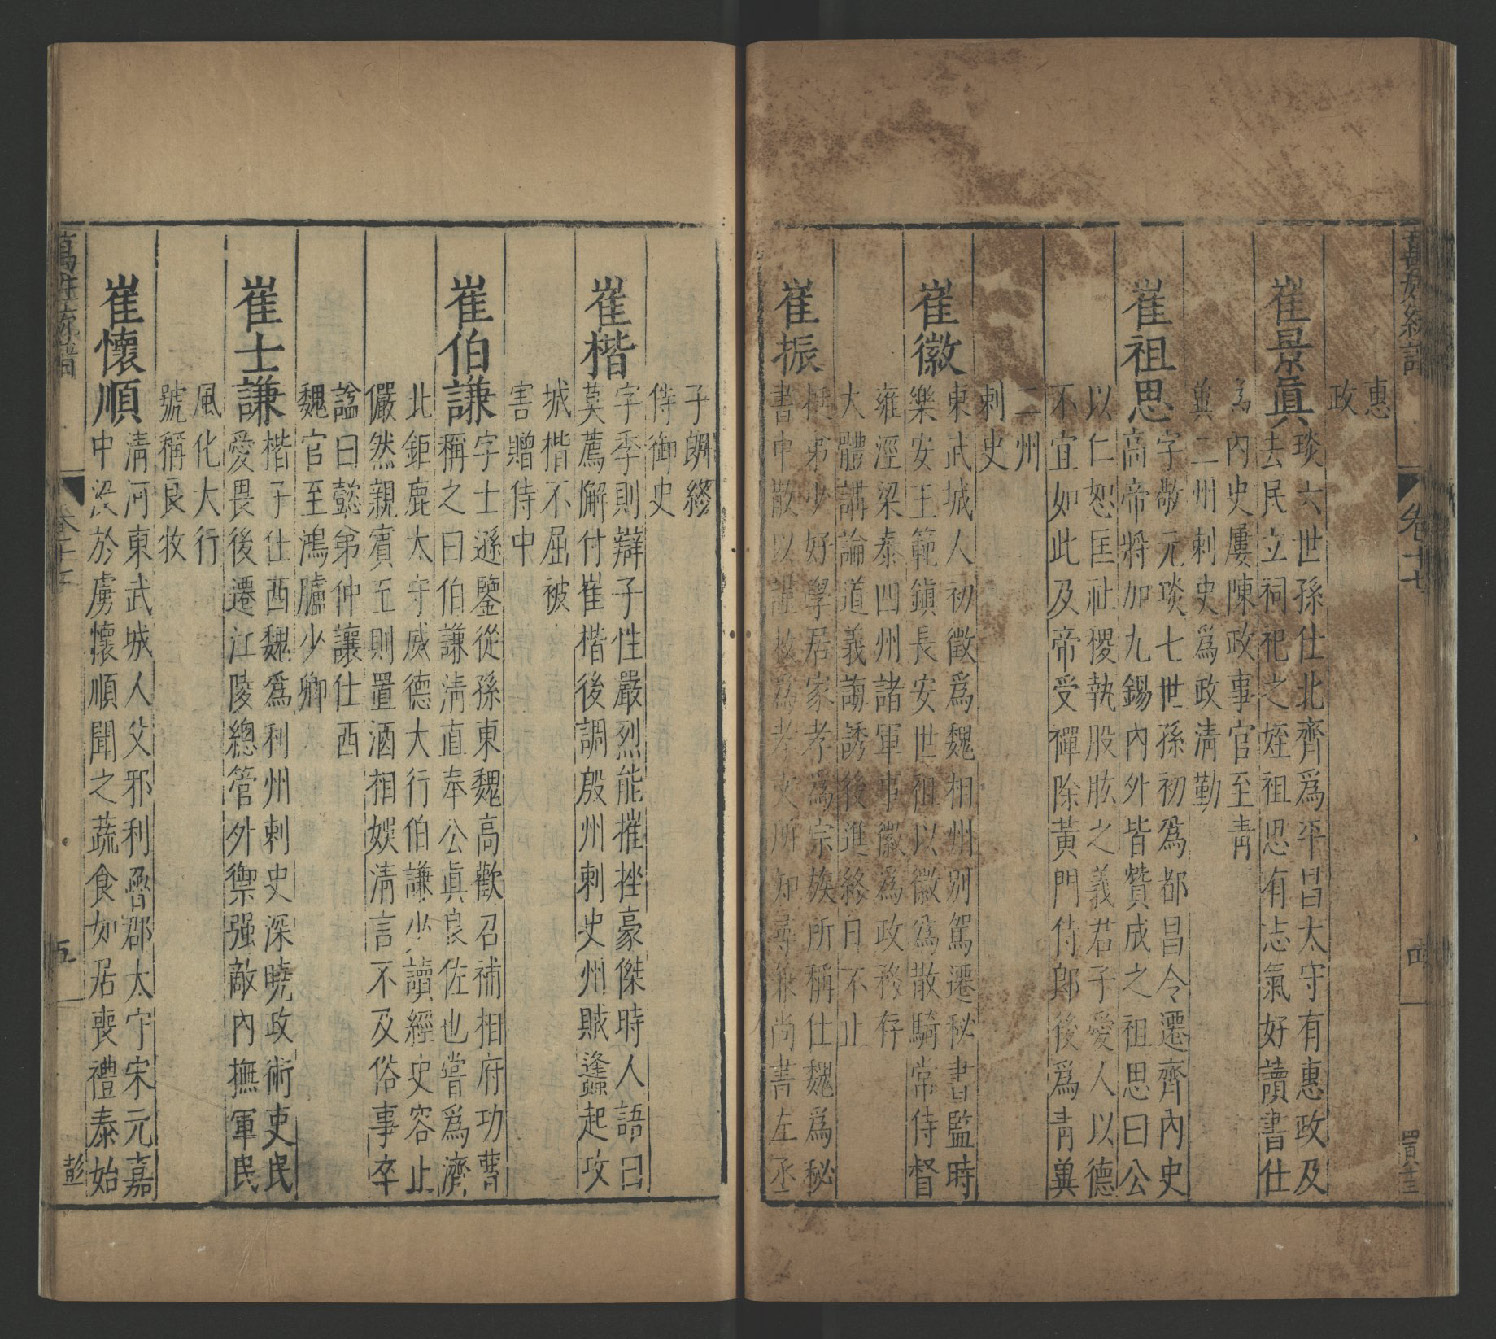 萬姓統譜
卷十七
惠
政
崔景眞
琰六世孫仕北齊爲平昌太守有惠政及
去民立祠祀之姪祖思有志氣好讀書仕
爲內史屢陳政事官至靑
兾二州刺史爲政清勤
崔祖思
字敬元琰七世孫初爲都昌令遷齊內史
高帝將加九錫內外皆贊成之祖思曰公
以仁恕匡社稷執股肱之義君子愛人以德
不宜如此及帝受禪除黃門侍郎後爲靑兾
二州
刺史
崔徽
東武城人初徵爲魏相州別駕遷秘書監時
樂安王範鎮長安世祖以徽爲散騎常侍督
雍涇梁泰四州諸軍事徽爲政務存
大體講論道義誨誘後進終日不止
崔振
挺弟少好學居家孝爲宗族所稱仕魏爲秘
書中散以謹敕爲孝文所知尋兼尚書左丞
子朗終
侍御史
崔楷
字季則辯子性嚴烈能摧挫豪傑時人語曰
莫薦懈付崔楷後調殷州刺史州賊蠭起攻
城楷不屈被
害贈侍中
崔伯謙
字士遜鑒從孫東魏高歡召補相府功曹
稱之曰伯謙清直奉公眞良佐也嘗爲濟
北鉅鹿太守威德大行伯謙少讀經史容止
儼然親賓至則置酒相娛清言不及俗事卒
諡曰懿弟仲讓仕西
魏官至鴻臚少卿
崔士謙
楷子仕西魏爲利州刺史深曉政術吏民
愛畏後遷江陵總管外禦强敵內撫軍民
風化大行
號稱良牧
崔懷順
淸河東武城人父邪利魯郡太守宋元嘉
中没於虜懷順聞之蔬食如居喪禮泰始
萬姓統譜
五
彭